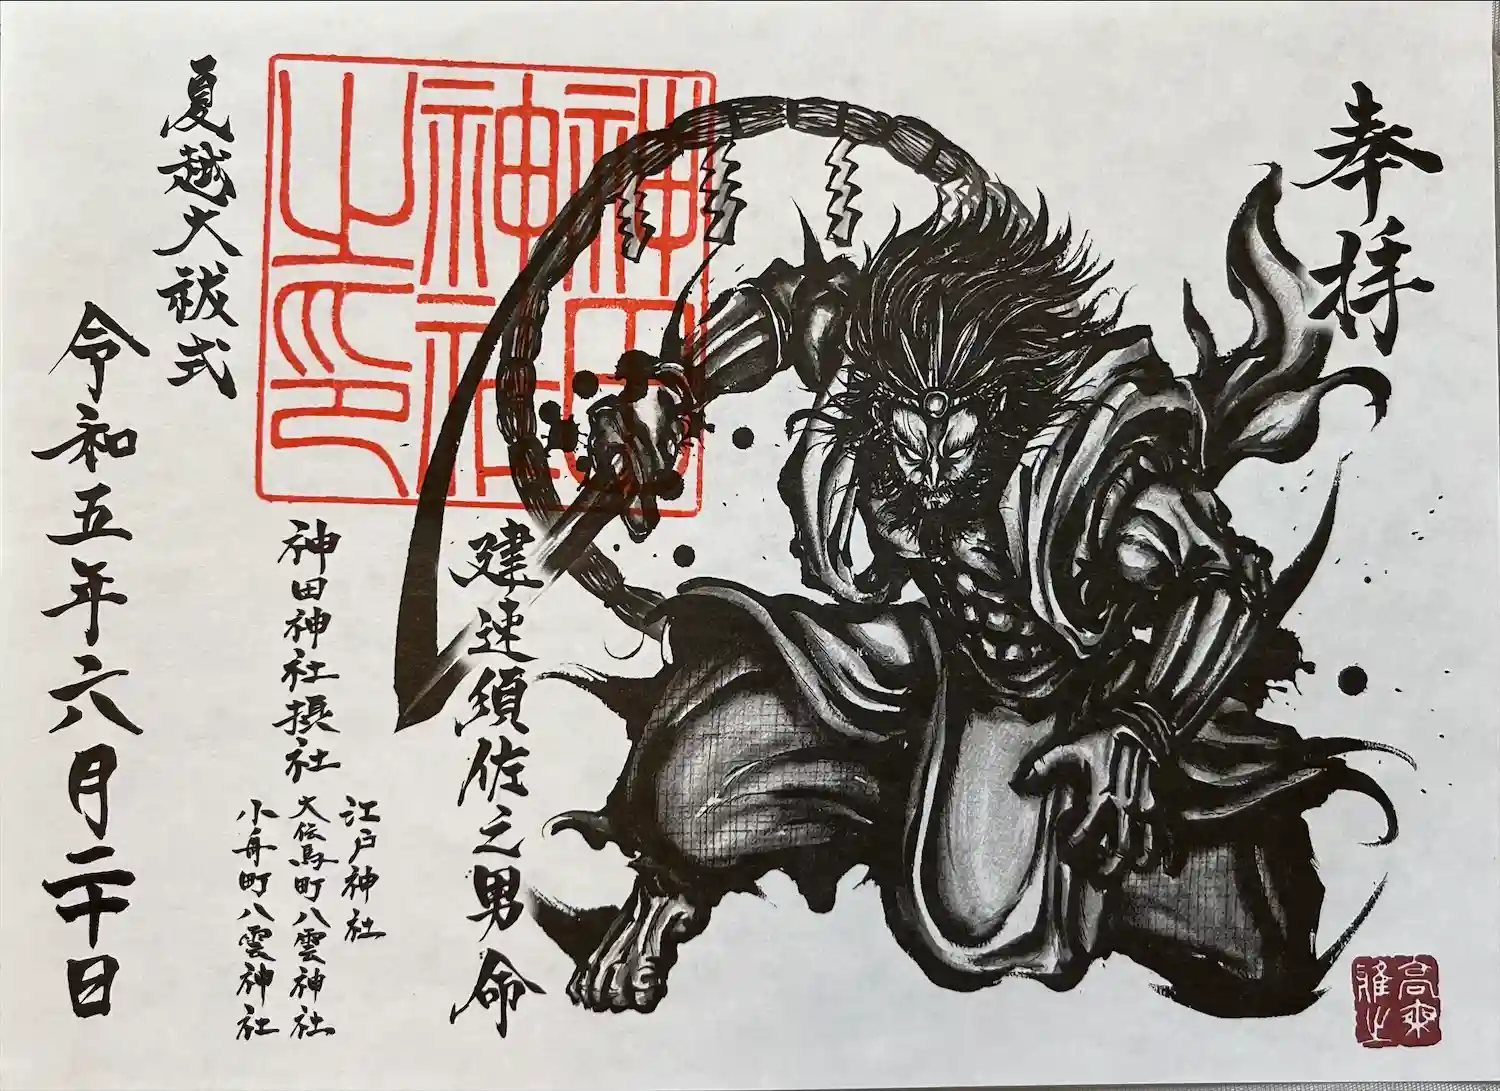 奉拝
神田
神社
之印
建速須佐之男命
神田神社摂社
江戸神社
大伝馬町八雲神社
小舟町八雲神社
夏越大祓式
令和五年六月三十日